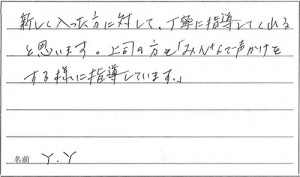 新しく入った方に対して、丁寧に指導してくれる
と思います。上司の方も「みんなで声かけを
する様に指導しています。」
名前 Y.Y